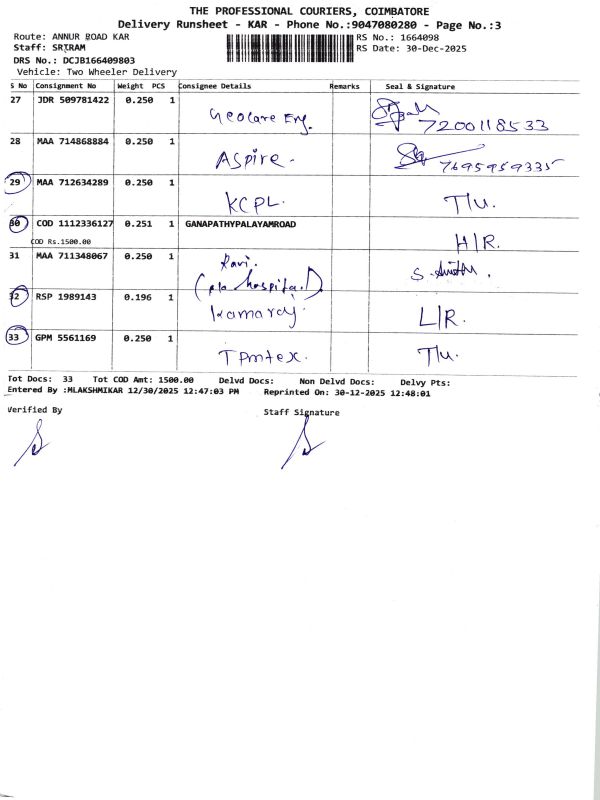 THE PROFESSIONAL COURIERS, COIMBATORE
Delivery Runsheet - KAR - Phone No.:9047080280 - Page No.:3
Route: ANNUR ROAD KAR
RS No.: 1664098
Staff: SRIRAM
RS Date: 30-Dec-2025
DRS No.: DCJB166409803
Vehicle: Two Wheeler Delivery
S No Consignment No Weight PCS Consignee Details Remarks Seal & Signature
27 JDR 509781422 0.250 1 Geocare Eng. 7200118533
28 MAA 714868884 0.250 1 Aspire. 7695959335
29 MAA 712634289 0.250 1 KCPL. T/U.
30 COD 1112336127 0.251 1 GANAPATHYPALAYAMROAD
COD Rs.1500.00 H/R.
31 MAA 711348067 0.250 1 Ravi.
hospital).
32 RSP 1989143 0.196 1 Kamaraj L/R.
33 GPM 5561169 0.250 1 TPmtex. T/U.
Tot Docs: 33 Tot COD Amt: 1500.00 Delvd Docs: Non Delvd Docs: Delvy Pts:
Entered By :MLAKSHMIKAR 12/30/2025 12:47:03 PM Reprinted On: 30-12-2025 12:48:01
Verified By Staff Signature